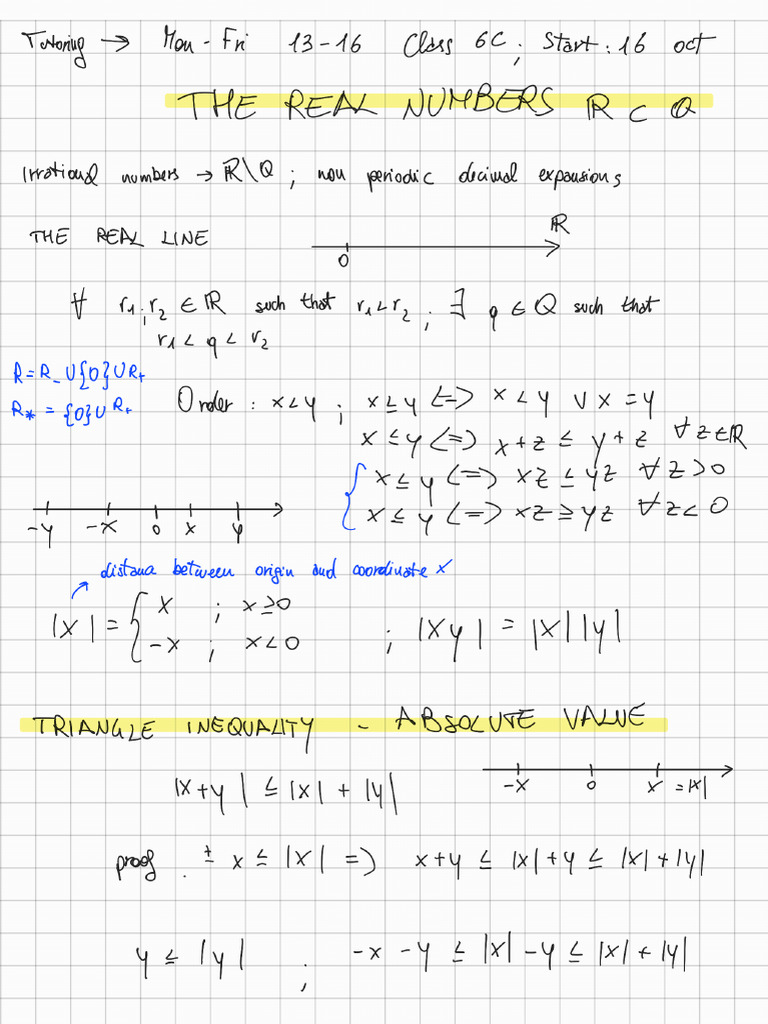 Tutoring → Mon - Fri 13-16 Class 6C ; Start: 16 oct
THE REAL NUMBERS ℝ ⊂ Q
Irrational numbers → ℝ\Q ; non periodic decimal expansions
THE REAL LINE
ℝ
0
∀ r₁, r₂ ∈ ℝ such that r₁ < r₂ ; ∃ q ∈ Q such that
r₁ < q < r₂
R = R_ ∪ {0} ∪ R₊
R* = {0} ∪ R₊
Order : x < y ; x ≤ y <=> x < y ∨ x = y
x ≤ y <=> x + z ≤ y + z ∀ z ∈ ℝ
x ≤ y <=> xz ≤ yz ∀ z > 0
x ≤ y <=> xz ≥ yz ∀ z < 0
-y -x 0 x y
distana between origin and coordinate x
|x| = { x ; x ≥ 0
-x ; x < 0
; |xy| = |x||y|
TRIANGLE INEQUALITY - ABSOLUTE VALUE
-x 0 x = |x|
|x+y| ≤ |x| + |y|
proof. ± x ≤ |x| => x+y ≤ |x|+y ≤ |x|+|y|
y ≤ |y| ; -x -y ≤ |x| - y ≤ |x| + |y|